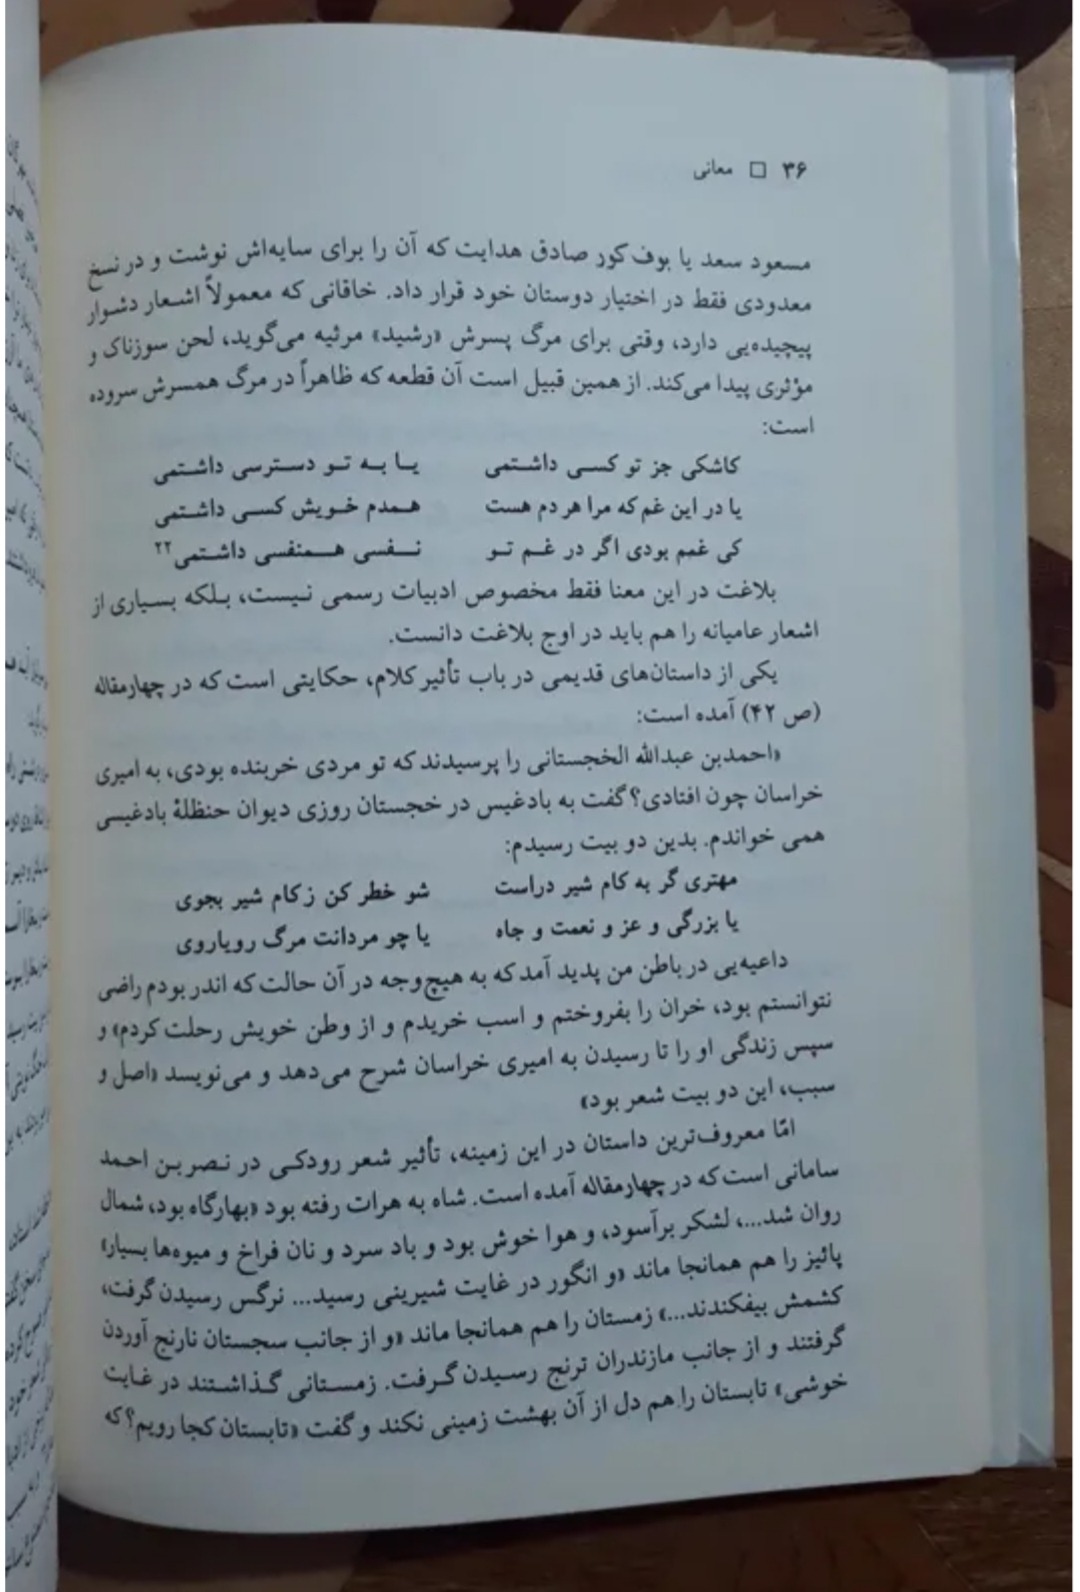 ۳۶ □ معانی
مسعود سعد یا بوف کور صادق هدایت که آن را برای سایه‌اش نوشت و در نسخ
معدودی فقط در اختیار دوستان خود قرار داد. خاقانی که معمولاً اشعار دشوار
پیچیده‌یی دارد، وقتی برای مرگ پسرش «رشید» مرثیه می‌گوید، لحن سوزناک و
مؤثری پیدا می‌کند. از همین قبیل است آن قطعه که ظاهراً در مرگ همسرش سروده
است:
کاشکی جز تو کسی داشتمی یا به تو دسترسی داشتمی
یا در این غم که مرا هر دم هست همدم خویش کسی داشتمی
کی غمم بودی اگر در غم تو نفسی همنفسی داشتمی۲۲
بلاغت در این معنا فقط مخصوص ادبیات رسمی نیست، بلکه بسیاری از
اشعار عامیانه را هم باید در اوج بلاغت دانست.
یکی از داستان‌های قدیمی در باب تأثیر کلام، حکایتی است که در چهارمقاله
(ص ۴۲) آمده است:
«احمدبن عبدالله الخجستانی را پرسیدند که تو مردی خربنده بودی، به امیری
خراسان چون افتادی؟ گفت به بادغیس در خجستان روزی دیوان حنظلهٔ بادغیسی
همی خواندم. بدین دو بیت رسیدم:
مهتری گر به کام شیر دراست شو خطر کن ز کام شیر بجوی
یا بزرگی و عز و نعمت و جاه یا چو مردانت مرگ رویاروی
داعیه‌یی در باطن من پدید آمد که به هیچ‌وجه در آن حالت که اندر بودم راضی
نتوانستم بود، خران را بفروختم و اسب خریدم و از وطن خویش رحلت کردم» و
سپس زندگی او را تا رسیدن به امیری خراسان شرح می‌دهد و می‌نویسد «اصل و
سبب، این دو بیت شعر بود»
امّا معروف‌ترین داستان در این زمینه، تأثیر شعر رودکی در نصربن احمد
سامانی است که در چهارمقاله آمده است. شاه به هرات رفته بود «بهارگاه بود، شمال
روان شد...، لشکر برآسود، و هوا خوش بود و باد سرد و نان فراخ و میوه‌ها بسیار»
پائیز را هم همانجا ماند «و انگور در غایت شیرینی رسید... نرگس رسیدن گرفت،
کشمش بیفکندند...» زمستان را هم همانجا ماند «و از جانب سجستان نارنج آوردن
گرفتند و از جانب مازندران ترنج رسیدن گرفت. زمستانی گذاشتند در غایت
خوشی» تابستان را هم دل از آن بهشت زمینی نکند و گفت «تابستان کجا رویم؟ که